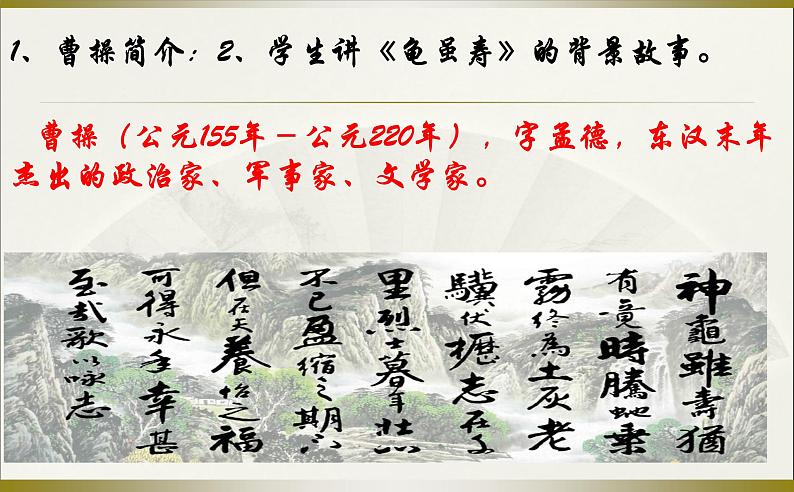 1、曹操简介；2、学生讲《龟虽寿》的背景故事。
曹操（公元155年－公元220年），字孟德，东汉末年
杰出的政治家、军事家、文学家。
神龜雖壽猶
有竟時騰蛇乘
霧終為土灰老
驥伏櫪志在千
里烈士暮年壯心
不已盈縮之期不
但在天養怡之福
可得永年幸甚
至哉歌以詠志